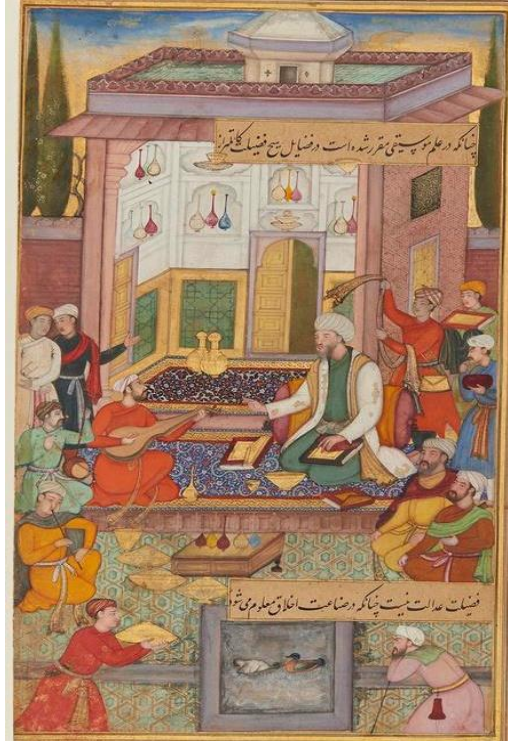 چنانکه در علم موسیقی مقرر شده است در فضایل هیچ فضیلت کاملتر از
فضیلت عدالت نیست چنانکه در صناعت اخلاق معلوم می شود